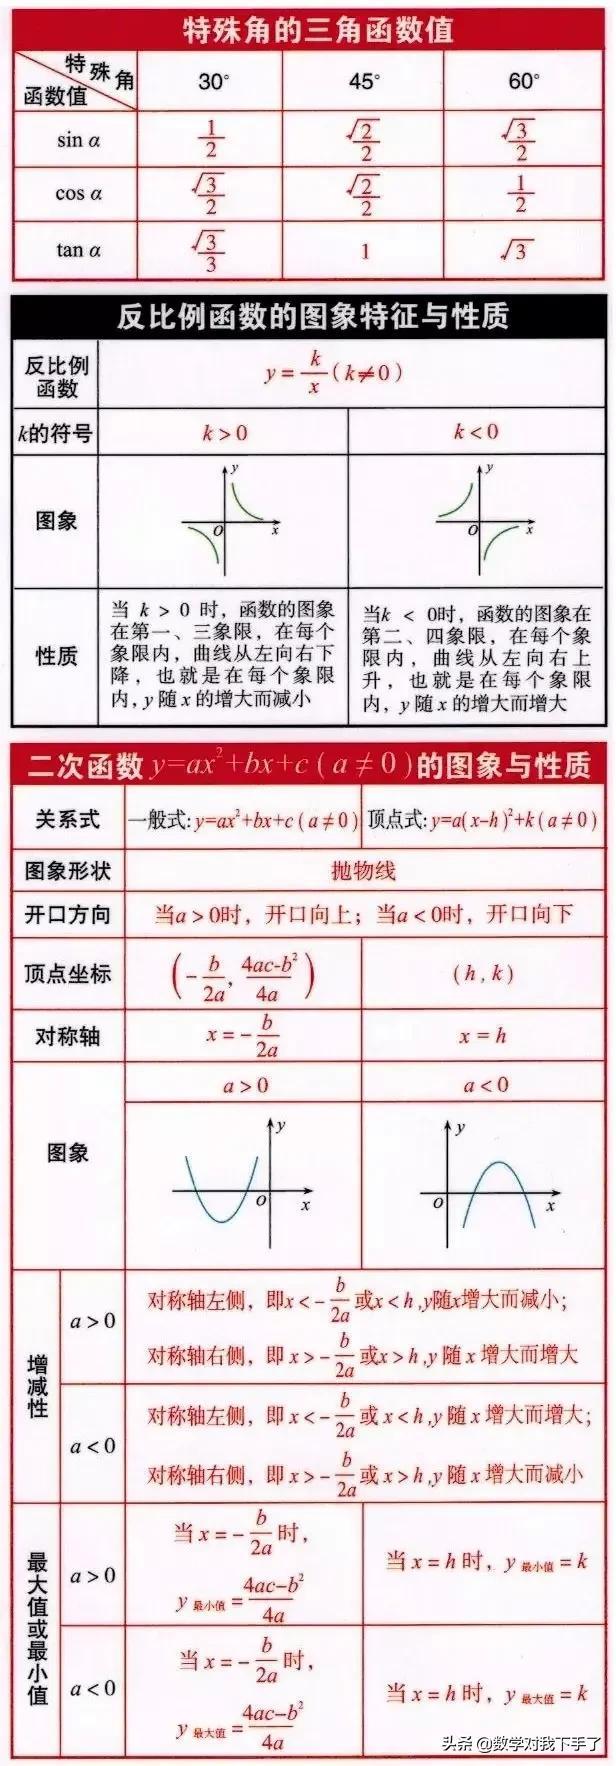 特殊角的三角函数值
特殊角
函数值
30° 45° 60°
sin α 1/2 √2/2 √3/2
cos α √3/2 √2/2 1/2
tan α √3/3 1 √3
反比例函数的图象特征与性质
反比例
函数
y = k/x (k≠0)
k的符号 k>0 k<0
图象
y
O x
y
O x
性质
当 k > 0 时，函数的图象
在第一、三象限，在每个
象限内，曲线从左向右下
降，也就是在每个象限
内，y 随 x 的增大而减小
当k < 0时，函数的图象在
第二、四象限，在每个象
限内，曲线从左向右上
升，也就是在每个象限
内，y 随 x 的增大而增大
二次函数 y=ax²+bx+c ( a ≠ 0 ) 的图象与性质
关系式 一般式: y=ax²+bx+c ( a≠0 ) 顶点式: y=a(x-h)²+k ( a≠0 )
图象形状 抛物线
开口方向 当a>0时，开口向上；当a<0时，开口向下
顶点坐标 (-b/2a, 4ac-b²/4a) (h, k)
对称轴 x=-b/2a x = h
图象
a>0 a<0
y
O x
y
O x
增减性
a>0
对称轴左侧，即x<-b/2a 或x<h,y随x增大而减小；
对称轴右侧，即 x>-b/2a 或x>h,y 随 x 增大而增大
a<0
对称轴左侧，即 x<-b/2a 或 x<h,y 随 x 增大而增大；
对称轴右侧，即 x>-b/2a 或 x>h,y 随 x 增大而减小
最大值或最小值
a>0
当 x=-b/2a 时，
y 最小值 = 4ac-b²/4a
当 x=h 时，y 最小值 = k
a<0
当 x=-b/2a 时，
y 最大值 = 4ac-b²/4a
当 x=h 时，y 最大值 = k
头条 @数学对我下手了